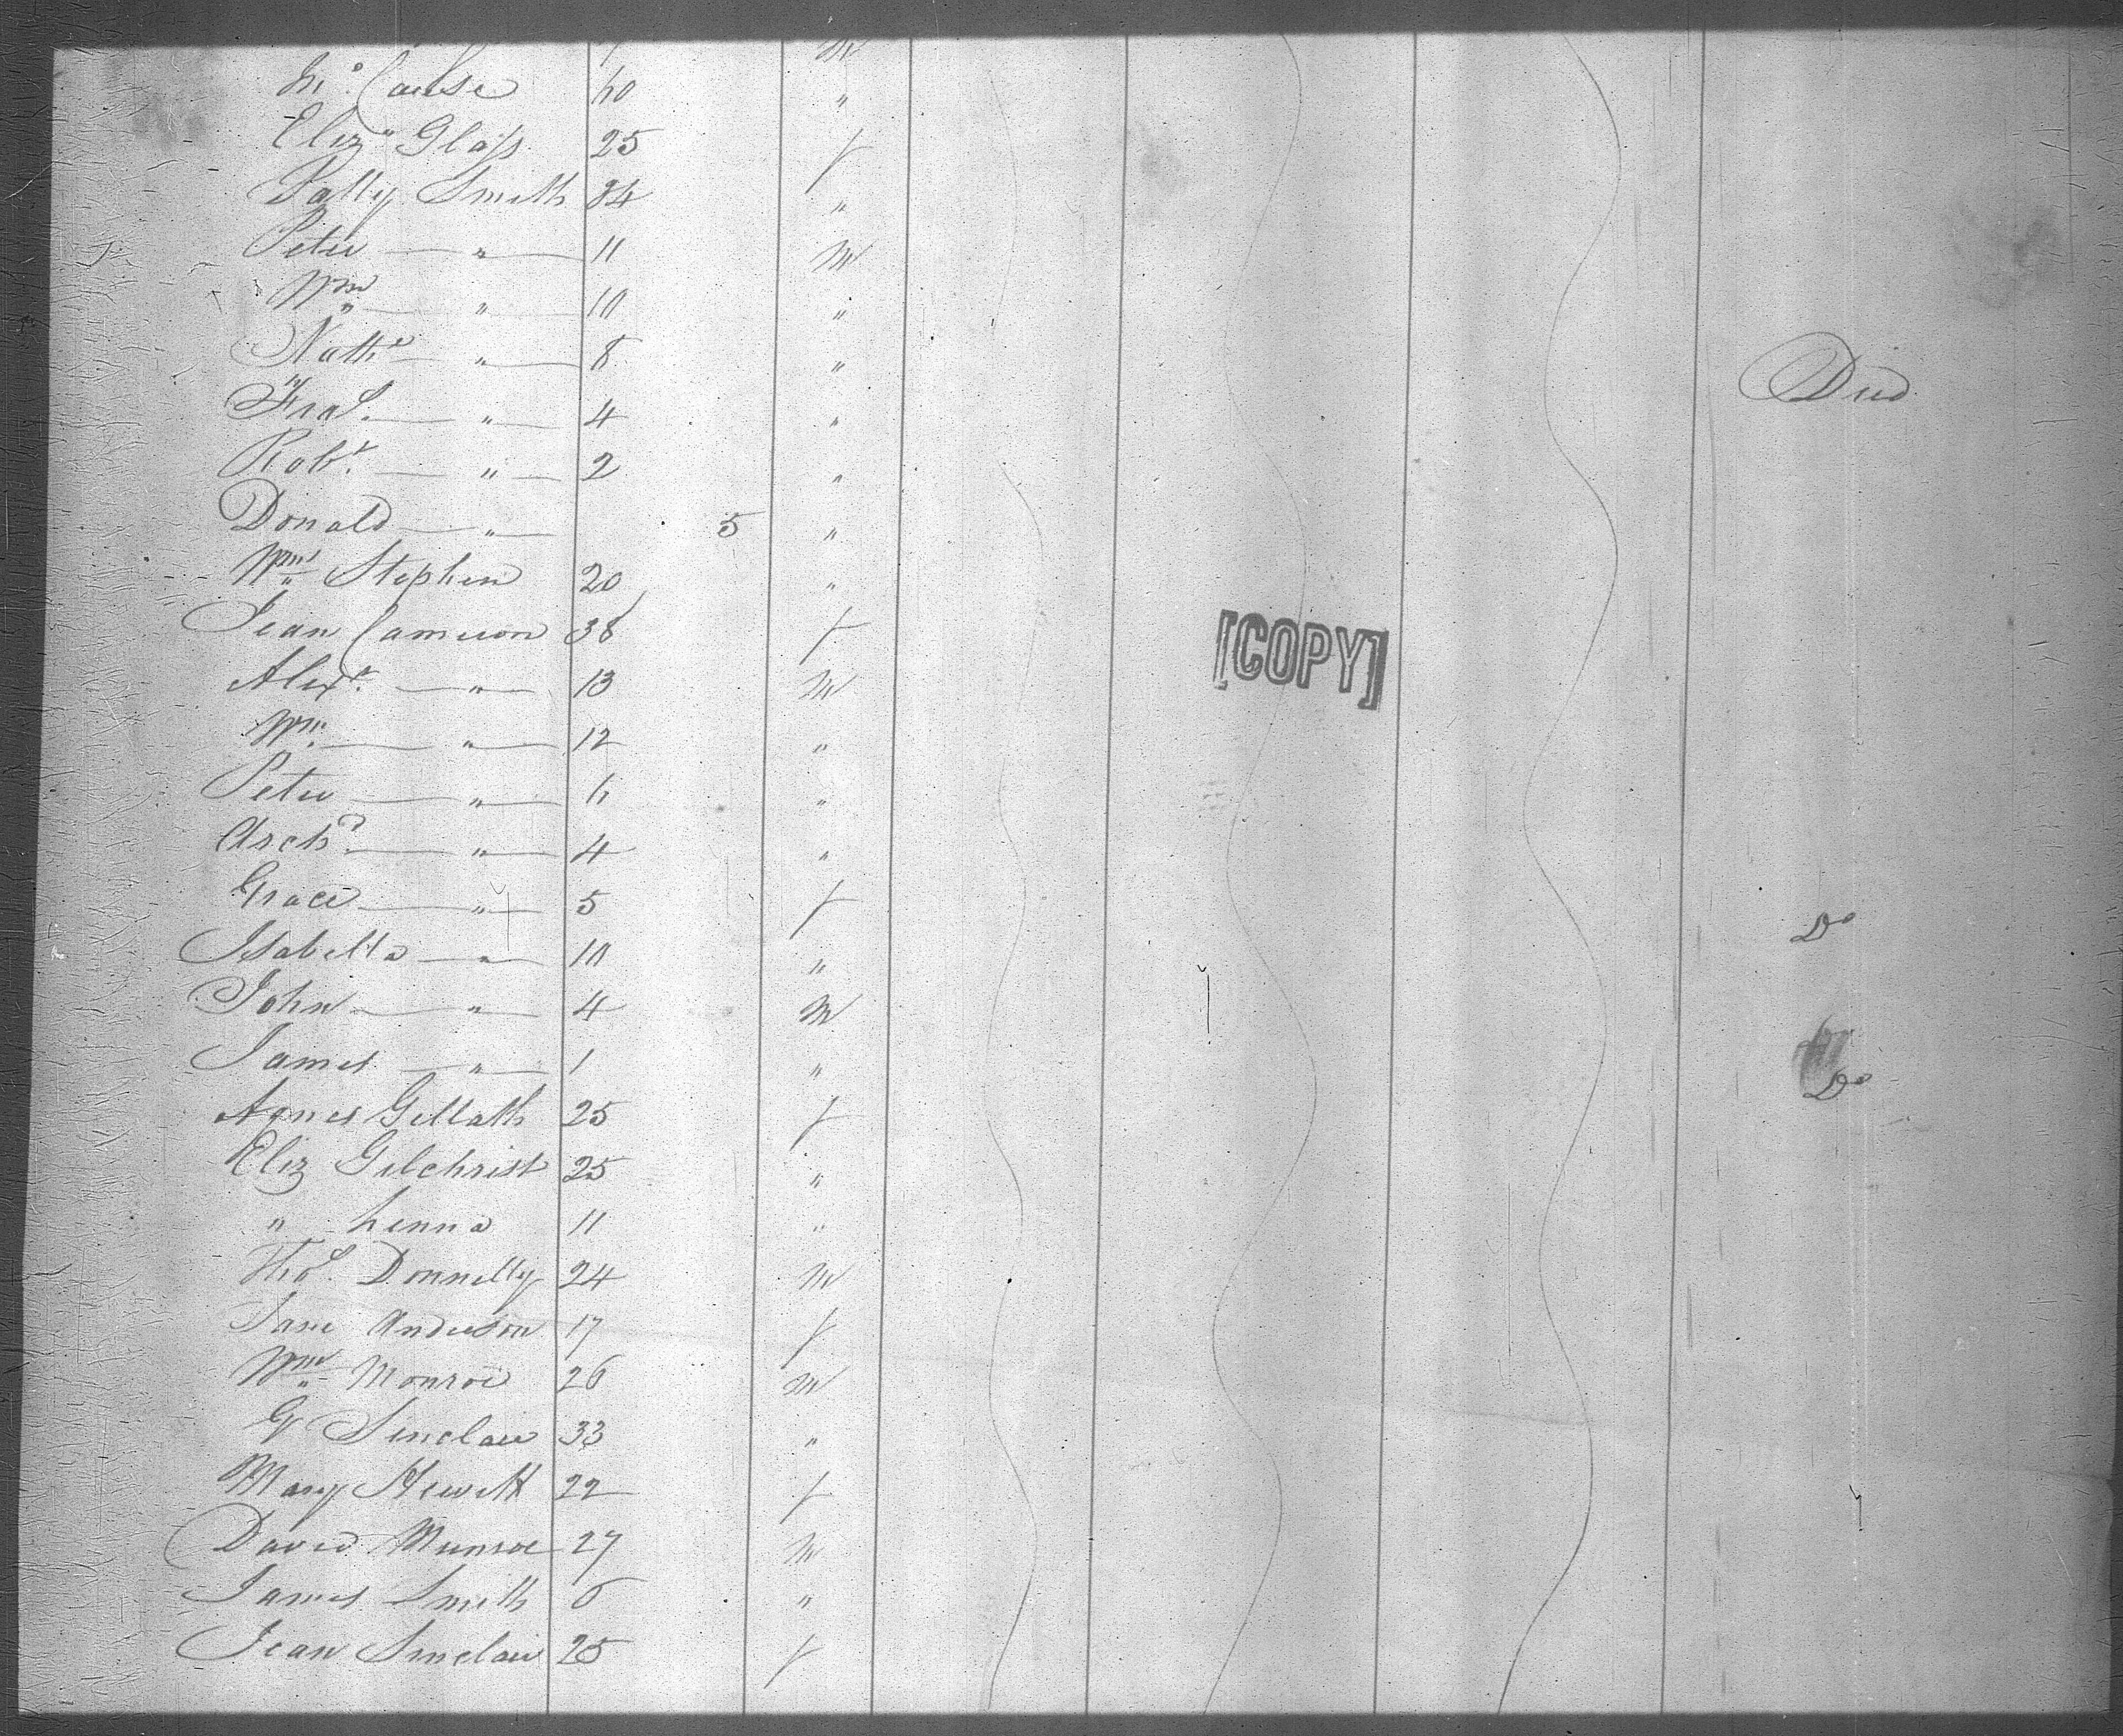 M
Jnº. Cause 60 "
Eliz.ª Glass 25 f
Sally Smith 34 "
Peter — " — 11 M
Wm — " — 10 "
Nath.l — " — 8 "
Fras. — " — 4 " Died
Robt. — " — 2 "
Donald — " 5 "
Wm Stephen 20 "
Jean Cameron 38 f
Alexr. — " — 13 M
Wm. — " — 12 "
Peter — " — 6 "
Archd. — " — 4 "
Grace — " — 5 f
Isabella — " — 10 " Do
John — " — 4 M
James — " — 1 " Do
Agnes 25 f
Eliz Gilchrist 25 "
" 11 "
Thos. Donnelly 24 M
Jane Anderson 17 f
Wm Monroe 26 M
G Sinclair 33 "
Mary Hewitt 22 f
David Munroe 27 M
James Smith 6 "
Jean Sinclair 25 f
[COPY]